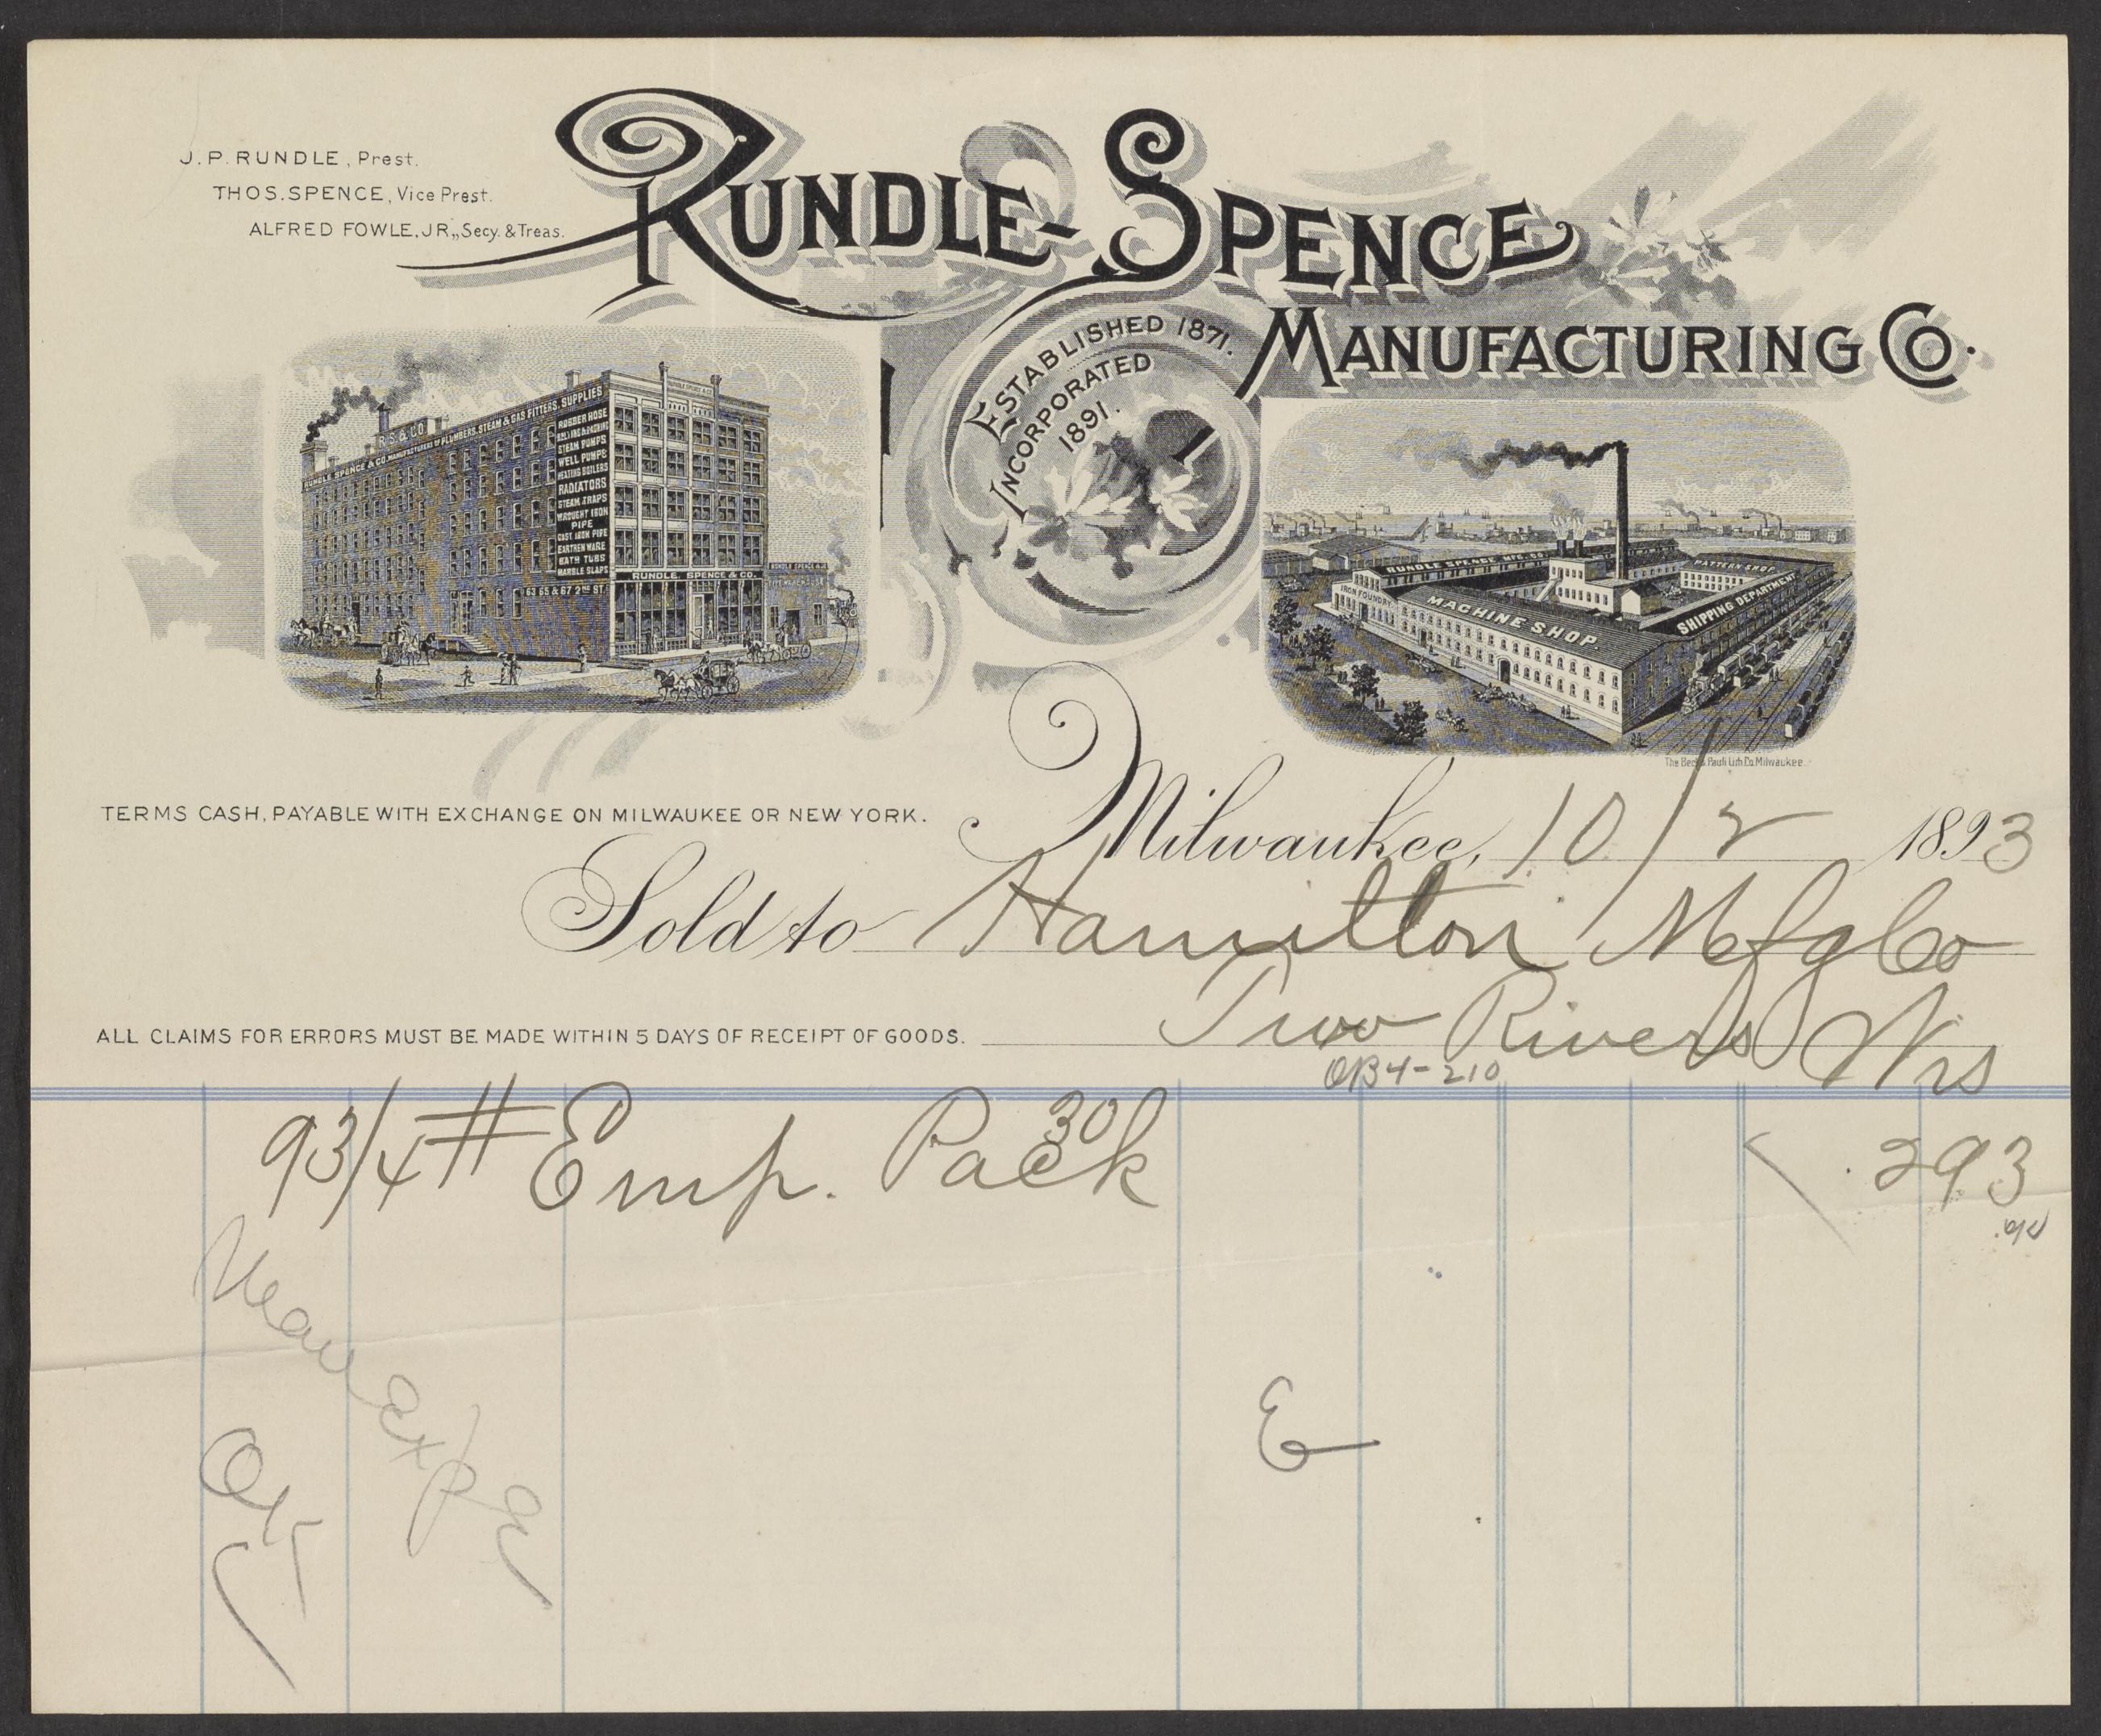 J.P. RUNDLE, Prest.
THOS. SPENCE, Vice Prest.
ALFRED FOWLE, JR., Secy. & Treas.
RUNDLE-SPENCE
MANUFACTURING CO.
ESTABLISHED 1871.
INCORPORATED
1891.
R.S. & CO.
RUNDLE SPENCE & CO. MANUFACTURERS OF PLUMBERS, STEAM & GAS FITTERS, SUPPLIES
RUBBER HOSE
BELTING & PACKING
STEAM PUMPS
WELL PUMPS
HEATING BOILERS
RADIATORS
STEAM TRAPS
WROUGHT IRON
PIPE
CAST IRON PIPE
EARTHENWARE
BATH TUBS
MARBLE SLABS
63 65 & 67 2ND ST.
RUNDLE SPENCE & CO.
RUNDLE, SPENCE & CO.
RUNDLE SPENCE & CO
PIPE WAREHOUSE
RUNDLE SPENCE MFG. CO.
IRON FOUNDRY.
MACHINE SHOP.
PATTERN SHOP.
SHIPPING DEPARTMENT.
The Beck & Pauli Lith. Co. Milwaukee.
TERMS CASH, PAYABLE WITH EXCHANGE ON MILWAUKEE OR NEW YORK.
Milwaukee, 10/2 1893
Sold to Hamilton Mfg Co
Two Rivers Wis
ALL CLAIMS FOR ERRORS MUST BE MADE WITHIN 5 DAYS OF RECEIPT OF GOODS.
OB4-210
9 3/4 # Emp. Pack 30 293
E
OK